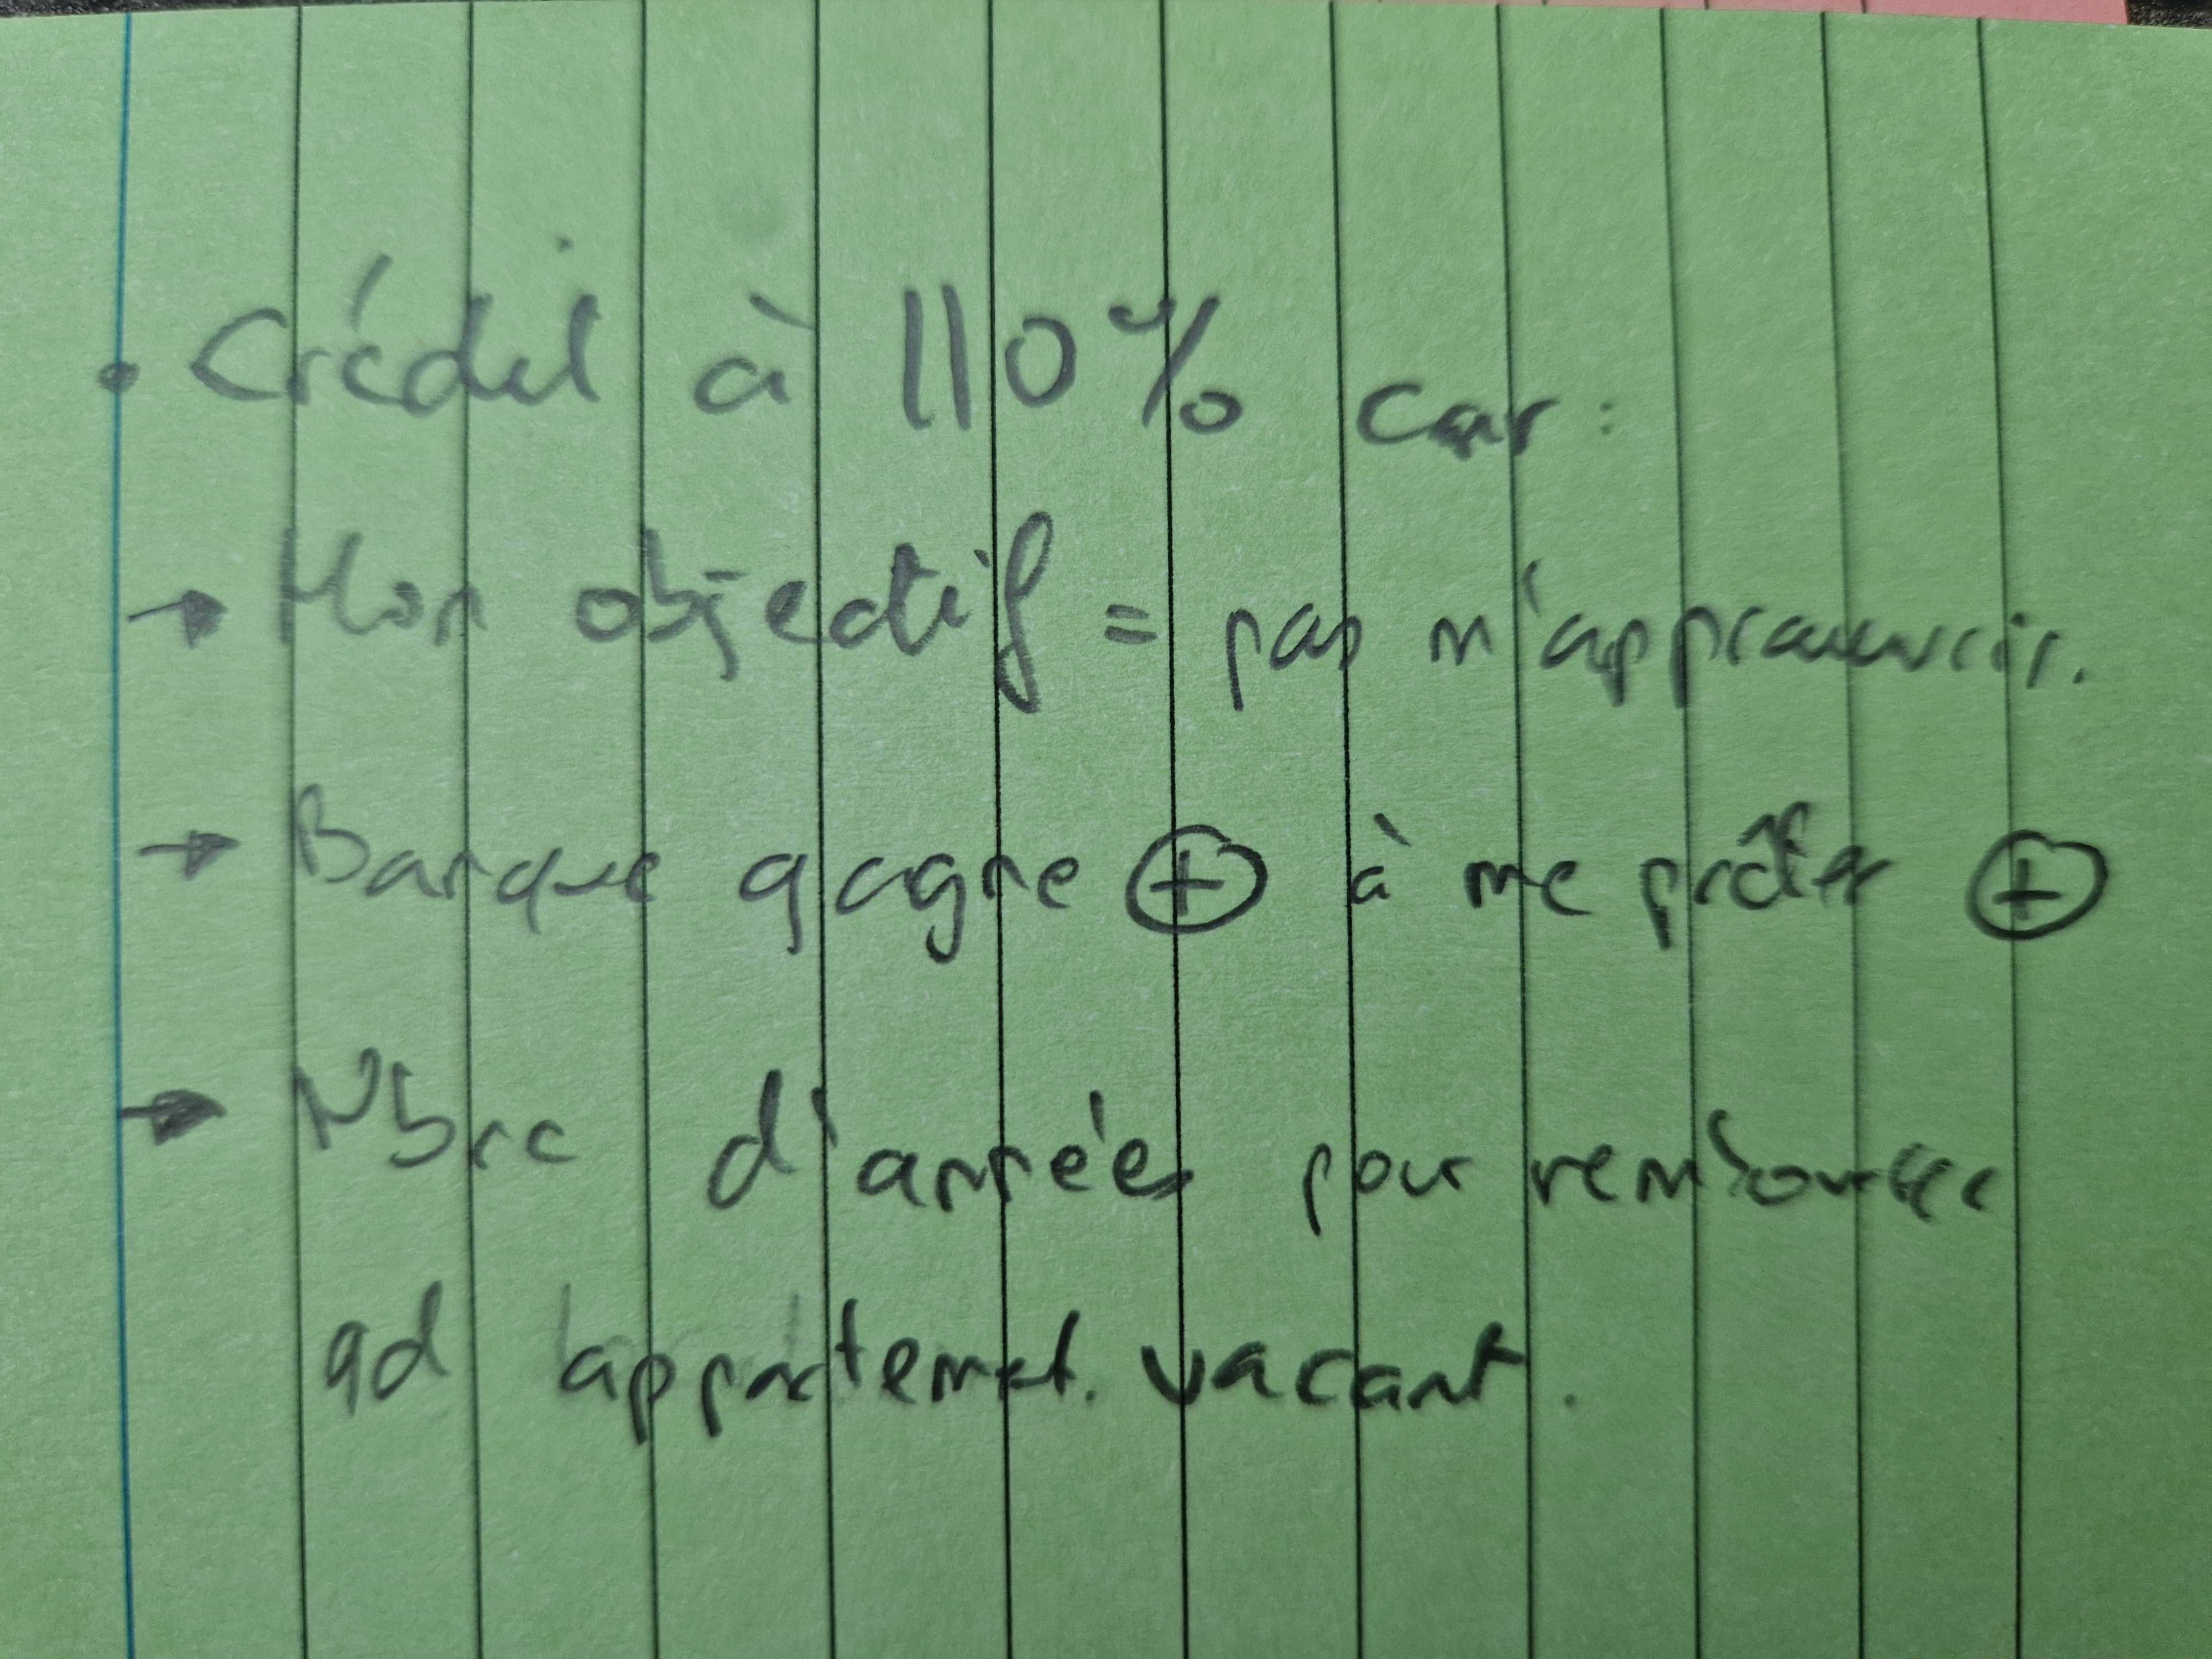 • Crédit à 110% car :
→ Mon objectif = pas m'apprauvrir.
→ Banque gagne ⊕ à me prêter ⊕
→ Nbre d'années pour rembourser
qd appartemet. vacant.